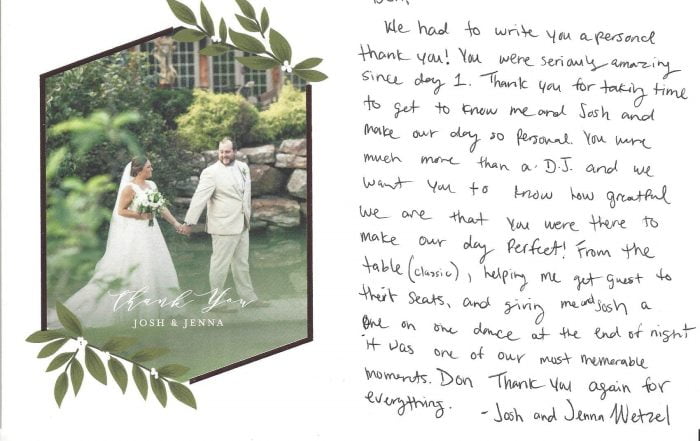 Thank You
JOSH & JENNA
Don,
We had to write you a personal
thank you! You were seriously amazing
since day 1. Thank you for taking time
to get to know me and Josh and
make our day so personal. You were
much more than a D.J. and we
want you to know how greatful
we are that you were there to
make our day perfect! From the
table (classic), helping me get guest to
their seats, and giving me and Josh a
one on one dance at the end of night
it was one of our most memorable
moments. Don Thank you again for
everything.
- Josh and Jenna Wetzel